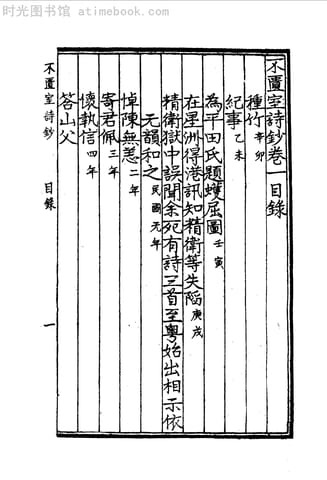 时光图书馆·atimebook.com
不匱室詩鈔卷一目錄
種竹 辛卯
紀事 乙未
為平田氏題蠖屈圖 壬寅
在星洲得港訊知精衛等失陷 庚戌
精衛獄中誤聞余死有詩三首至粵始出相示依
元韻和之 民國元年
悼陳無恙 二年
寄君佩 三年
懷執信 四年
答山父
不匱室詩鈔
目錄
一